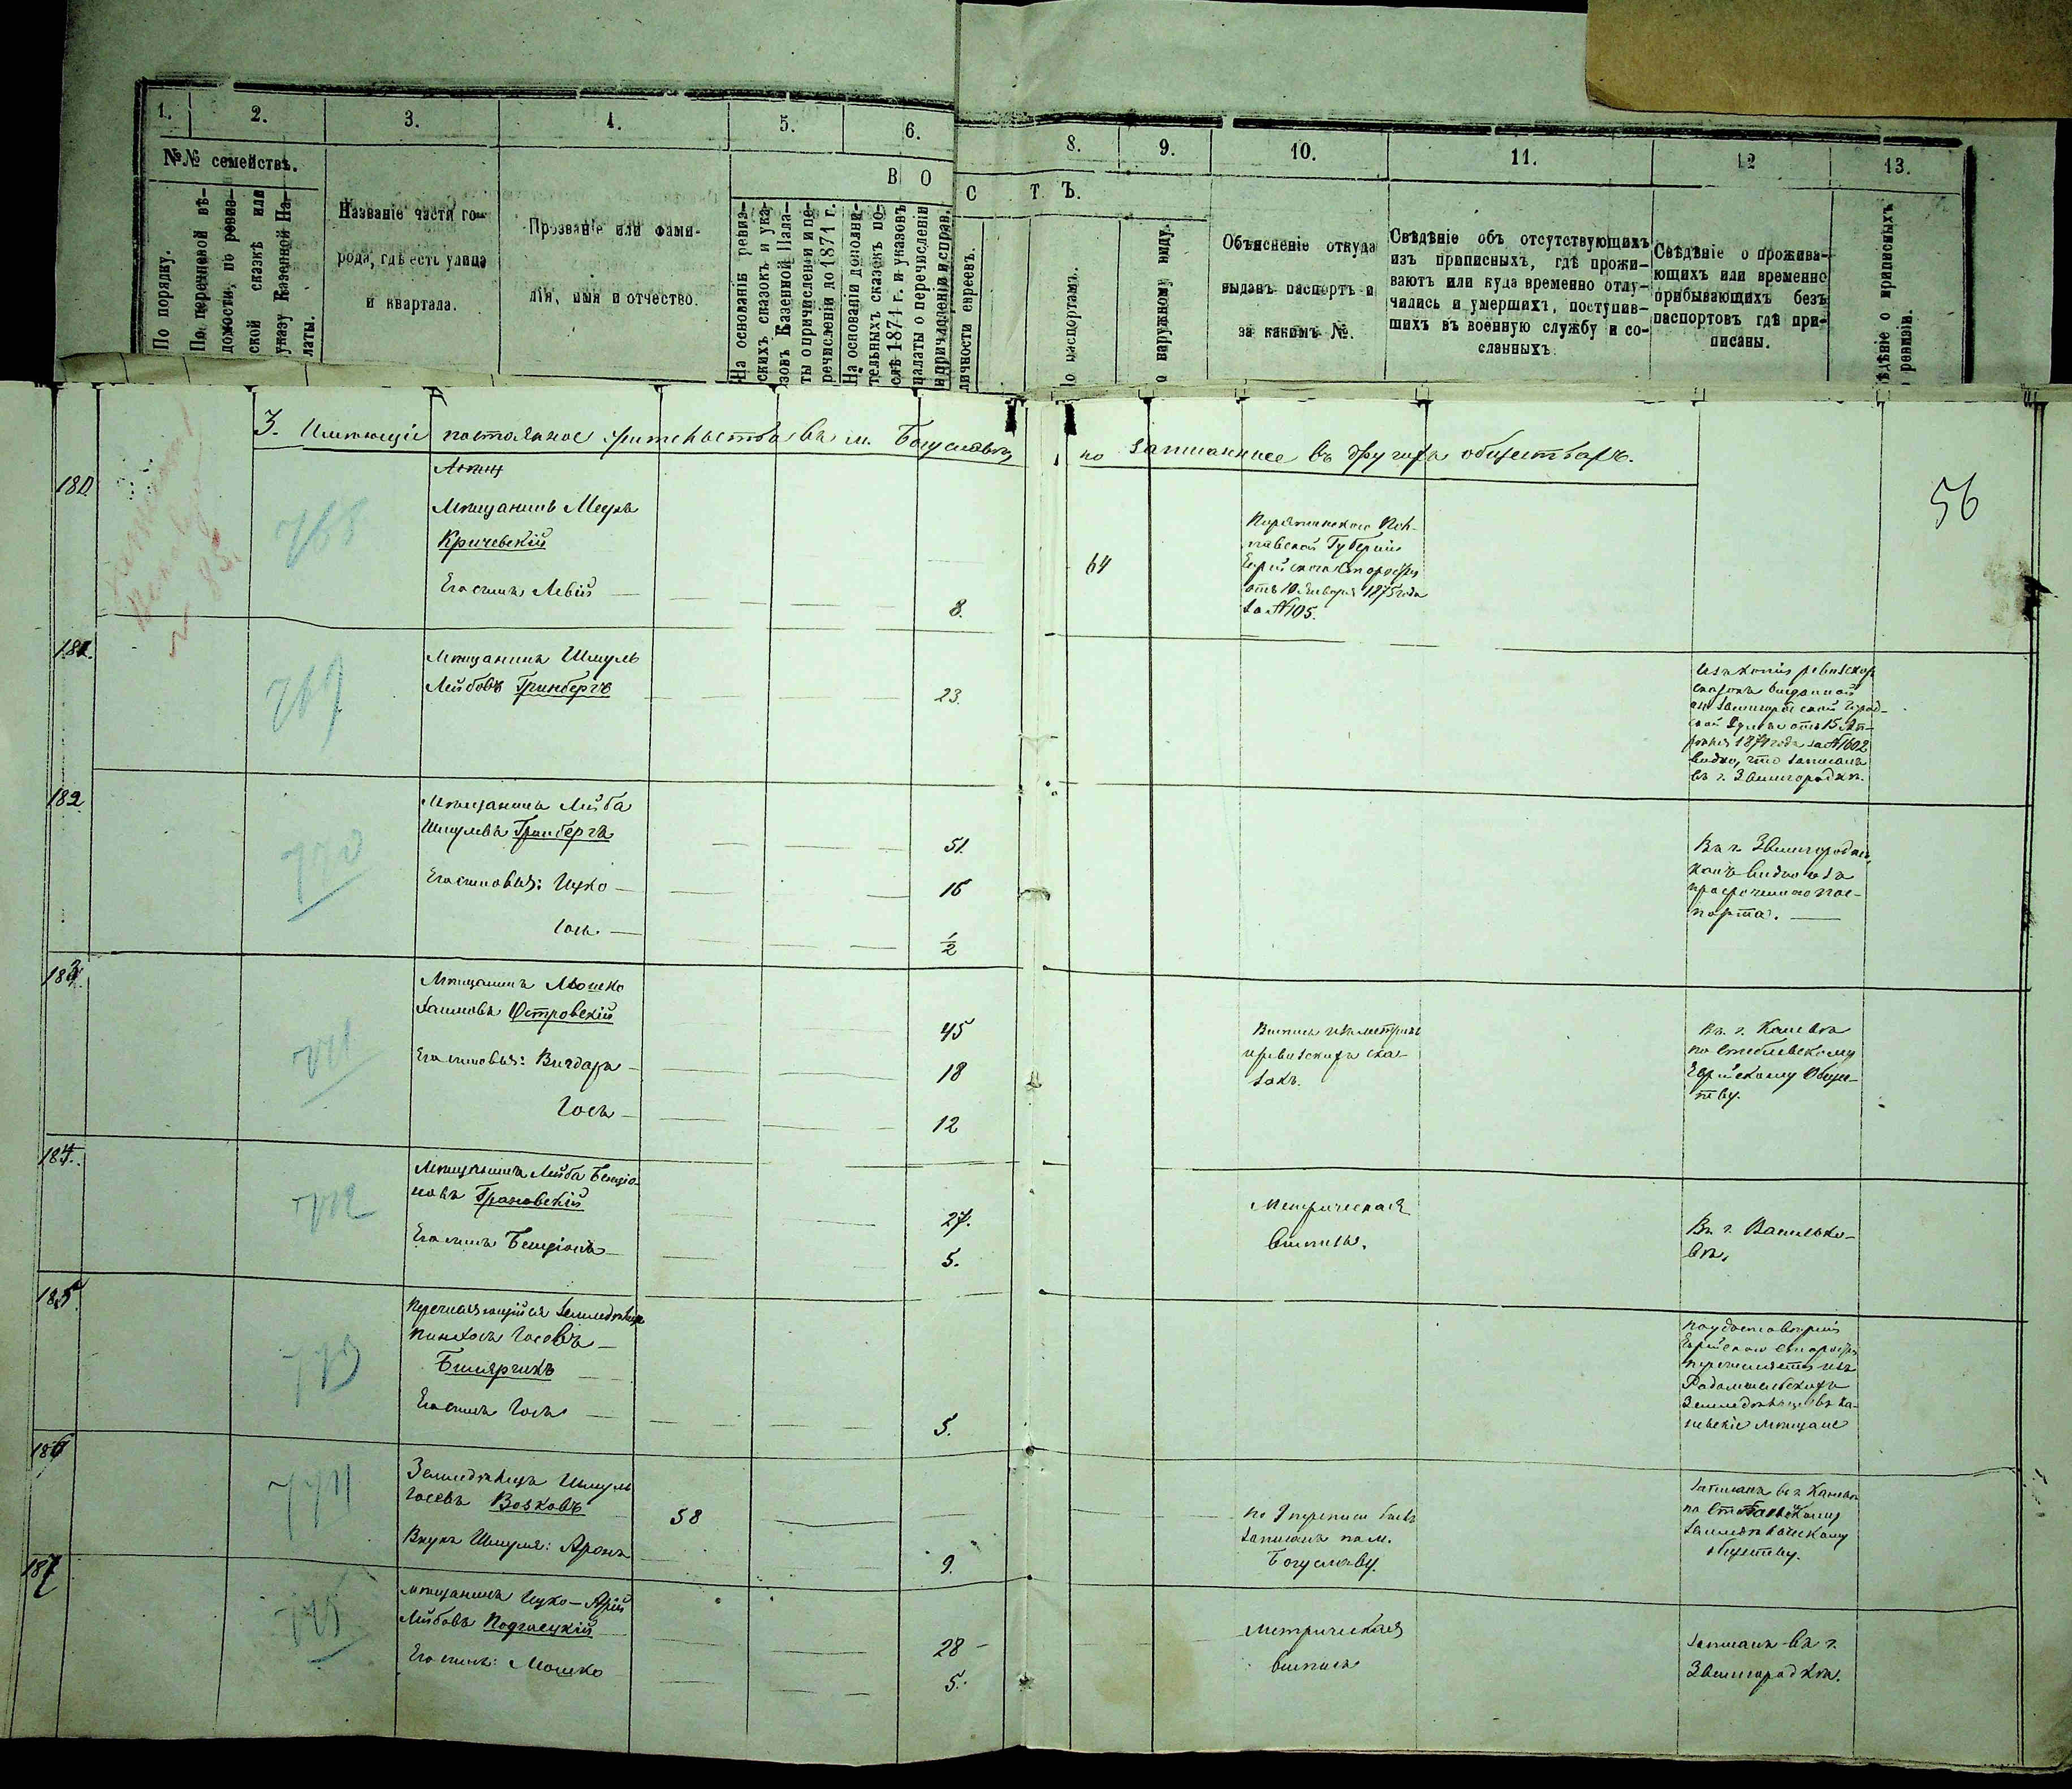 1.
2.
3.
4.
5.
6.
8.
9.
10.
11.
12
13.
№№ семействъ.
По порядку.
По перечневой вѣ-
домости, по ревиз-
ской сказкѣ или
указу Казенной Па-
латы.
Названіе части го-
рода, гдѣ есть улица
и квартала.
Прозваніе или фами-
лія, имя и отчество.
В О
С Т Ъ.
На основаніи ревиз-
скихъ сказокъ и ука-
зовъ Казенной Пала-
ты о причисленіи и пе-
речисленіи до 1871 г.
На основаніи дополни-
тельныхъ сказокъ по-
слѣ 1871 г. и указовъ
палаты о перечисленіи
и причисленіи и справ.
личности евреевъ.
по паспортамъ.
о наружному виду.
Объясненіе откуда
выданъ паспортъ и
за какимъ №.
Свѣдѣніе объ отсутствующихъ
изъ приписныхъ, гдѣ прожи-
ваютъ или куда временно отлу-
чились и умершихъ, поступив-
шихъ въ военную службу и со-
сланныхъ.
Свѣдѣніе о прожива-
ющихъ или временно
прибывающихъ безъ
паспортовъ гдѣ при-
писаны.
ѣдѣніе о приписныхъ
ревизіи.
3. Имѣющіе постоянное жительство въ м. Богуславѣ,
но записанные въ другихъ обществахъ.
56
180.
768
Мѣщанинъ Меер
Кричевскій
64
Его сынъ Левій
8.
Пирятинскаго Пол-
тавской Губерніи
Еврейскаго Старосты
отъ 10 Января 1875 года
за №105.
181.
769
Мѣщанинъ Шмуль
Лейбовъ Гринбергъ
23.
Изъ копіи ревизскихъ
сказокъ выданной
изъ Звенигородской Город-
ской Думы отъ 15 Ап-
рѣля 1874 года за №1602
видно, что записанъ
въ г. Звенигородкѣ.
182
770
Мѣщанинъ Лейба
Шмулевъ Гринбергъ
51.
Его сыновья: Ицко
16
Іось
1/2
Въ г. Звенигородкѣ,
какъ видно изъ
просроченнаго пас-
порта.
183.
771
Мѣщанинъ Мошко
Хаимовъ Островскій
45
Его сыновья:
18
Іось
12
Выпись изъ метрикъ
и ревизскихъ ска-
зокъ.
Въ г. Каневѣ
по Стеблевскому
Еврейскому Обще-
ству.
184.
772
Мѣщанинъ Лейба Бенціо-
новъ Грановскій
27.
Его сынъ Бенціонъ
5.
Метрическая
выпись.
Въ г. Василько-
вѣ.
185.
773
Перечисляющійся земледѣлецъ
Пинхосъ Іосевъ
Его сынъ Іось
5.
По удостовѣренію
Еврейскаго Старосты
перечисляется изъ
Радомысльскихъ
земледѣльцевъ въ Ка-
невскіе мѣщане
186
774
Земледѣлецъ Шмуль
Іосевъ Возковъ
58
Внукъ Шмуля: Аронъ
9.
По 9 переписи былъ
записанъ по м.
Богуславу.
Записанъ въ г. Каневѣ
по Стеблевскому
земледѣльческому
обществу.
187
775
Мѣщанинъ Ицко-Арій
Лейбовъ Подгаецкій
28
Его сынъ: Мошко
5.
Метрическая
выпись
Записанъ въ г.
Звенигородкѣ.